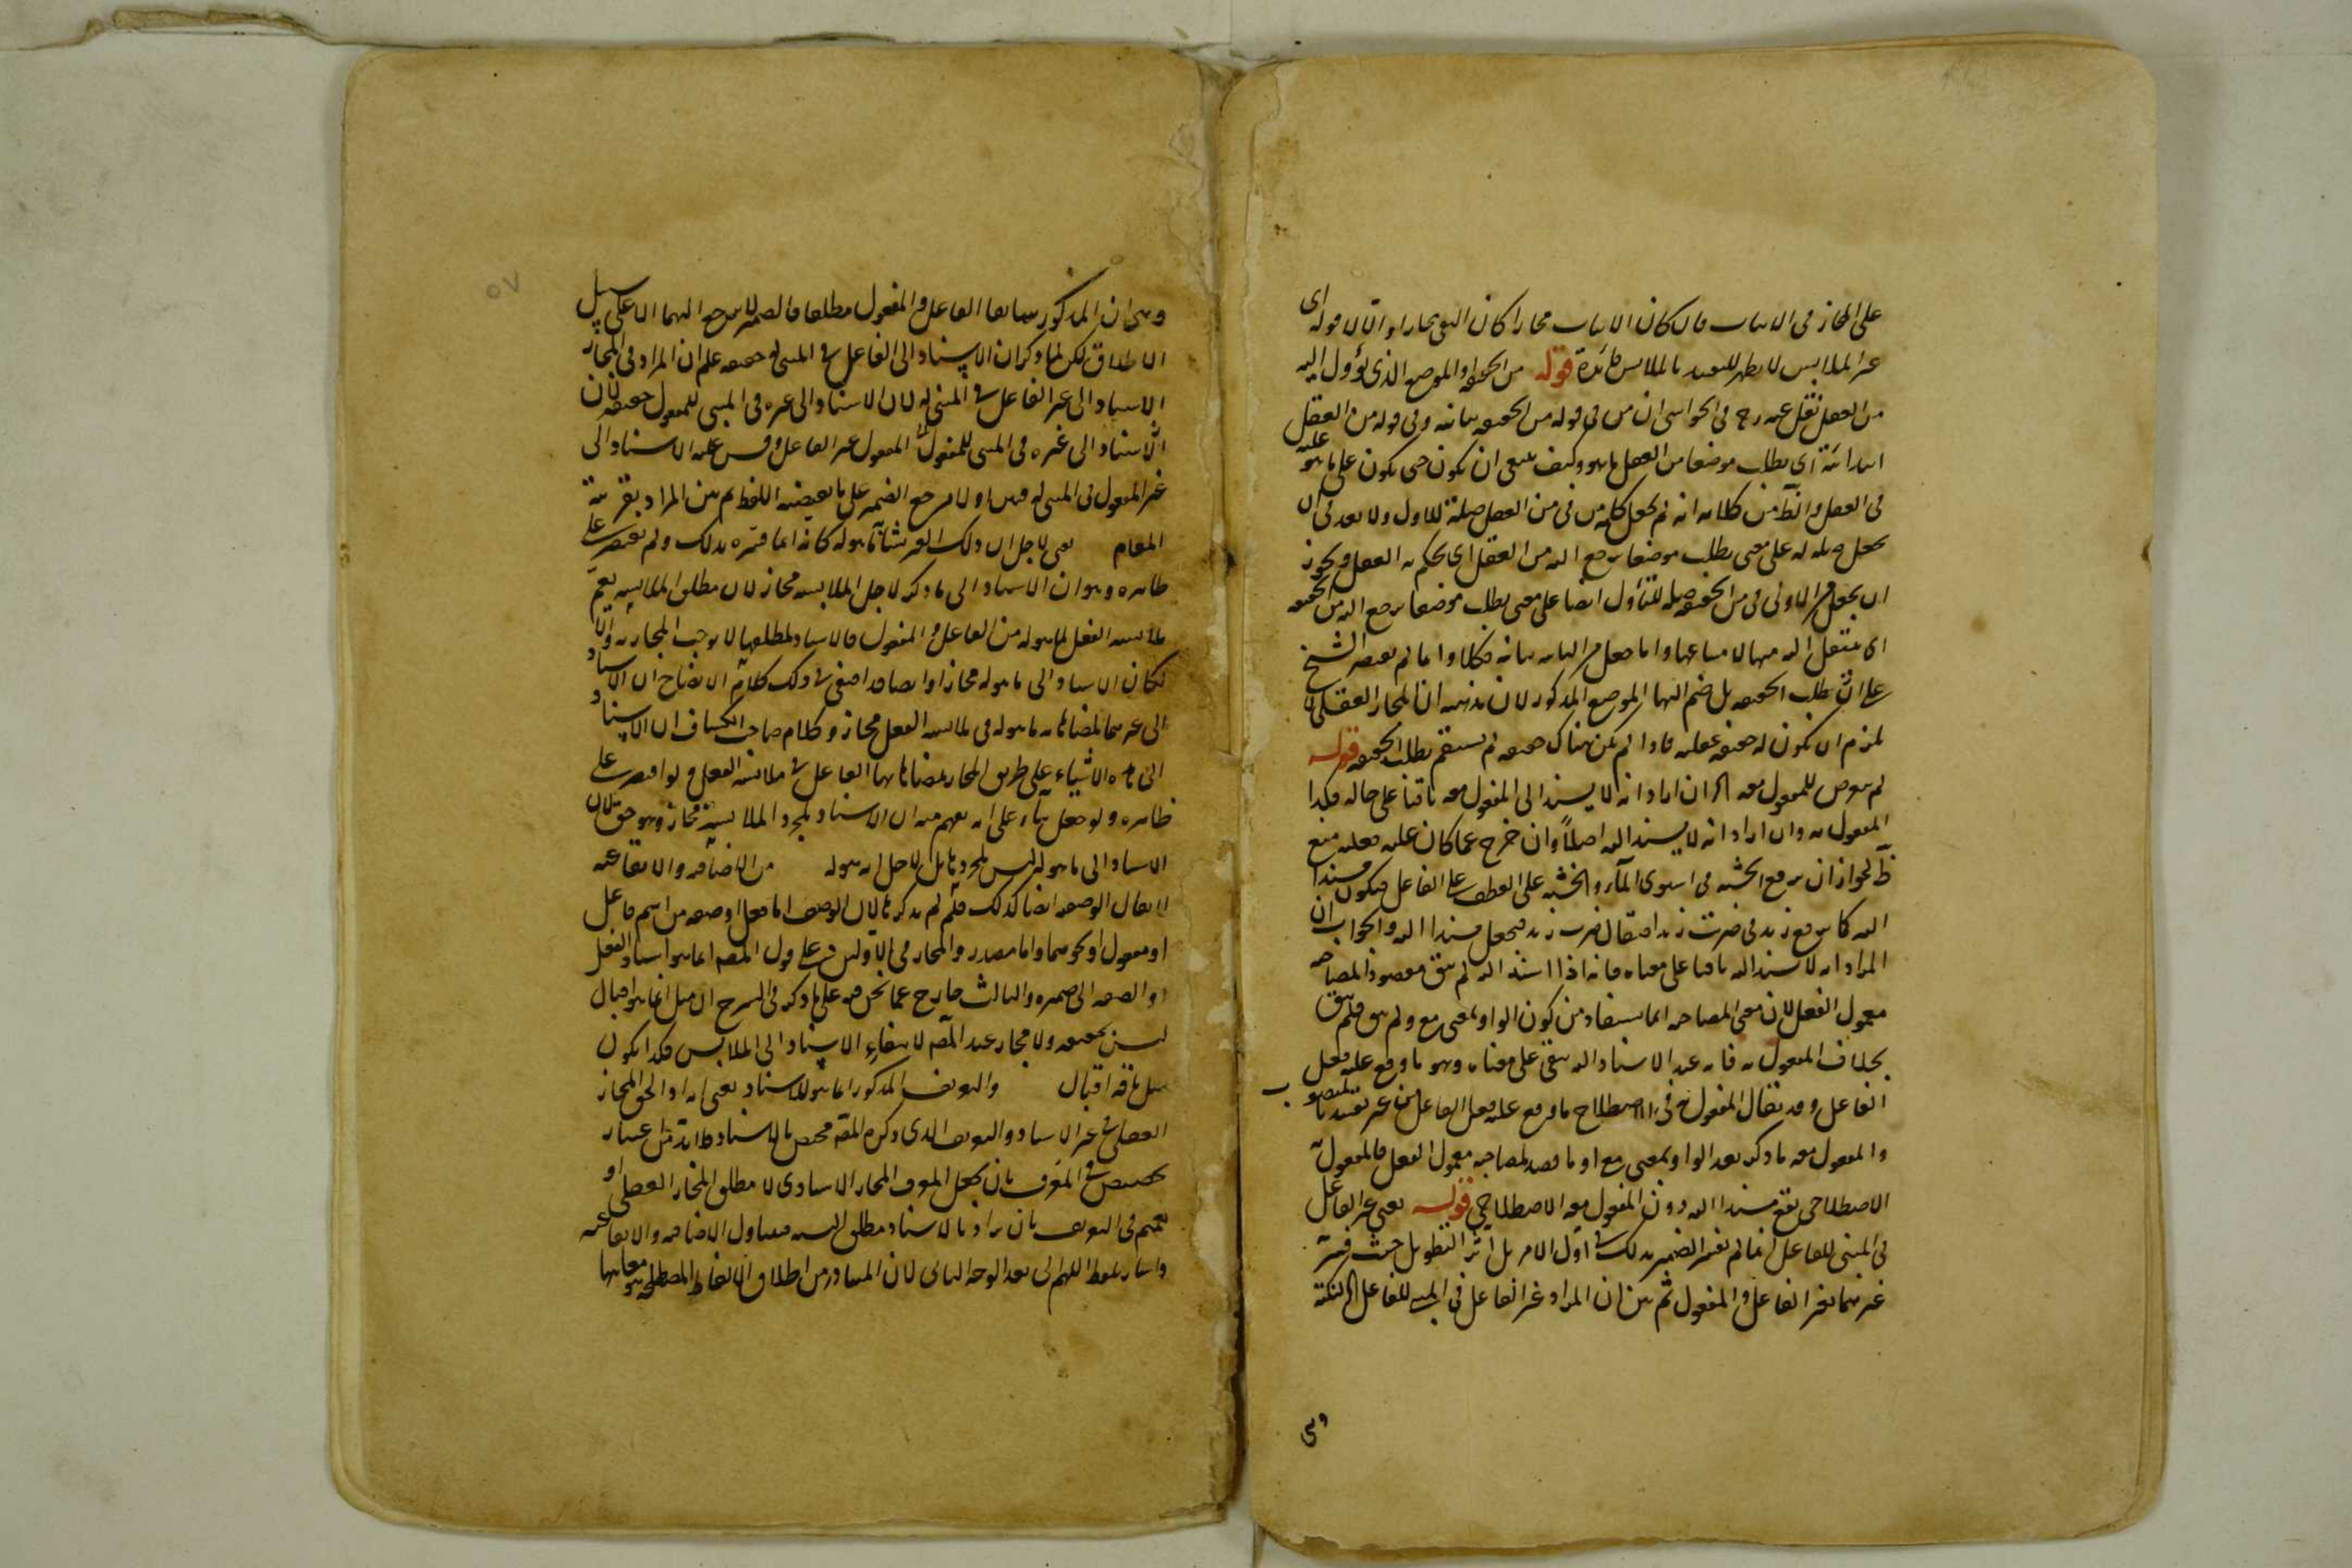 على المجاز فى الاثبات فان كان الاثبات مجازا كان النفى مجازا والا فلا قوله اى
غير الملابس لا يظهر للتقييد بالملابس فائدة قوله من الحقيقة او الموضع الذى يؤول اليه
من العقل نقل عنه رح فى الحواشى ان من فى قوله من الحقيقة بيانية وفى قوله من العقل
ابتدائية اى يطلب موضعا من العقل ما هو وكيف ينبغى ان يكون حتى يكون على ما هو عليه
فى العقل والظ من كلامه انه لم يجعل كلمة من فى من العقل صلة للاول ولا بعد فى ان
يجعل صلة له على معنى يطلب موضعا يرجع اليه من العقل اى يحكم به العقل ويجوز
ان يجعل من الاولى فى من الحقيقة صلة للتأول ايضا على معنى يطلب موضعا يرجع اليه من الحقيقة
اى ينتقل اليه منها لا متباعدا واما جعل من الثانية بيانية فكلا وانما لم يقتصر الشيخ
على ان يطلب الحقيقة بل ضم اليها الموضع المذكور لان مذهبه ان المجاز العقلى لا
يلزم ان يكون له حقيقة عقلية فاذا لم يكن هناك حقيقة لم يستقم يطلب الحقيقة قوله
لم يتعرض للمفعول معه الخ ان اراد انه لا يسند الى المفعول معه باقيا على حاله فكذا
المفعول به وان اراد انه لا يسند اليه اصلا وان خرج عما كان عليه فعليه منع
ظ لجواز ان يرفع الخشبة فى استوى الماء والخشبة على العطف على الفاعل فيكون مسندا
اليه كما يرفع زيد فى ضربت زيدا فيقال ضرب زيد فيجعل مسندا اليه والجواب ان
المراد انه لا يسند اليه باقيا على معناه فانه اذا اسند اليه لم يبق مقصود المصاحبة
معمول الفعل لان معنى المصاحبة انما يستفاد من كون الواو بمعنى مع ولم يبق فلم يبق
بخلاف المفعول به فانه عند الاسناد اليه يبقى على معناه وهو ما وقع عليه فعل
الفاعل وقد يقال المفعول به فى الاصطلاح ما وقع عليه فعل الفاعل من غير تقييد بالمنصوب
والمفعول معه ما ذكر بعد الواو بمعنى مع او ما قصد لمصاحبة معمول الفعل فالمفعول به
الاصطلاحى يقع مسندا اليه دون المفعول معه الاصطلاحى قوله يعنى غير الفاعل
فى المبنى للفاعل انما لم يفسر الضمير بذلك فى اول الامر بل آثر التطويل حيث فسر
غيرهما بغير الفاعل والمفعول ثم بين ان المراد غير الفاعل فى المبنى للفاعل الخ لنكتة
وهى
وهى ان المذكور سابقا الفاعل والمفعول مطلقا فالضمير لا يرجع اليهما الا على سبيل
الاطلاق لكن لما ذكر ان الاسناد الى الفاعل فى المبنى له حقيقة علم ان المراد فى المجاز
الاسناد الى غير الفاعل فى المبنى له لان الاسناد الى غيره فى المبنى للمفعول حقيقة لان
الاسناد الى غيره فى المبنى للمفعول الى المفعول غير الفاعل وقس عليه الاسناد الى
غير المفعول فى المبنى له فهنا اولا مرجع الضمير على ما يقتضيه اللفظ ثم بين المراد بقرينة
المقام يعنى لاجل ان ذلك الغير شابه ما هو له كانه انما فسره بذلك ولم يقتصر على
ظاهره وهو ان الاسناد الى ما ذكر لاجل الملابسة مجاز لان مطلق الملابسة يعم
ملابسة الفعل لما هو له من الفاعل والمفعول فالاسناد لمطلقها لا يوجب المجازية والا
لكان الاسناد الى ما هو له مجازا وايضا قد اقتفى فى ذلك كلام الايضاح ان الاسناد
الى غيرهما لمضاهاته ما هو له فى ملابسة الفعل مجاز وكلام صاحب الكشاف ان الاسناد
الى هذه الاشياء على طريق المجاز لمضاهاتها الفاعل فى ملابسة الفعل ولو اقتصر على
ظاهره ولو جعل بناء على انه يفهم منه ان الاسناد لمجرد الملابسة مجاز وهو حق لان
الاسناد الى ما هو له ليس لمجردها بل لاجل انه هو له من الاضافية والايقاعية
لا يقال الوصفية ايضا كذلك فلم لم يذكرها لان الوصف اما فعل او صفة من اسم فاعل
او مفعول او نحوهما واما مصدر والمجاز فى الاولين على قول المص انما هو اسناد الفعل
او الصفة الى ضميره والثالث خارج عما نحن فيه على ما ذكره فى الشرح ان مثل انما هى اقبال
ليس بحقيقة ولا مجاز عند المص لانتفاء الاسناد الى الملابس فكذا يكون
مثل ناقة اقبال والتعريف المذكور انما هو للاسناد يعنى انه اذا الحق المجاز
العقلى فى غير الاسناد والتعريف الذى ذكره المص مختص بالاسناد فلا بد من اعتبار
تخصيص فى المعرف بان يجعل المعرف المجاز الاسنادى لا مطلق المجاز العقلى او
تعميم فى التعريف بان يراد بالاسناد مطلق النسبة فيتناول الاضافية والايقاعية
واشار بلفظ اللهم الى بعد الوجه الثانى لان المتبادر من اطلاق الالفاظ المصطلحة هو معانيها
٥٧